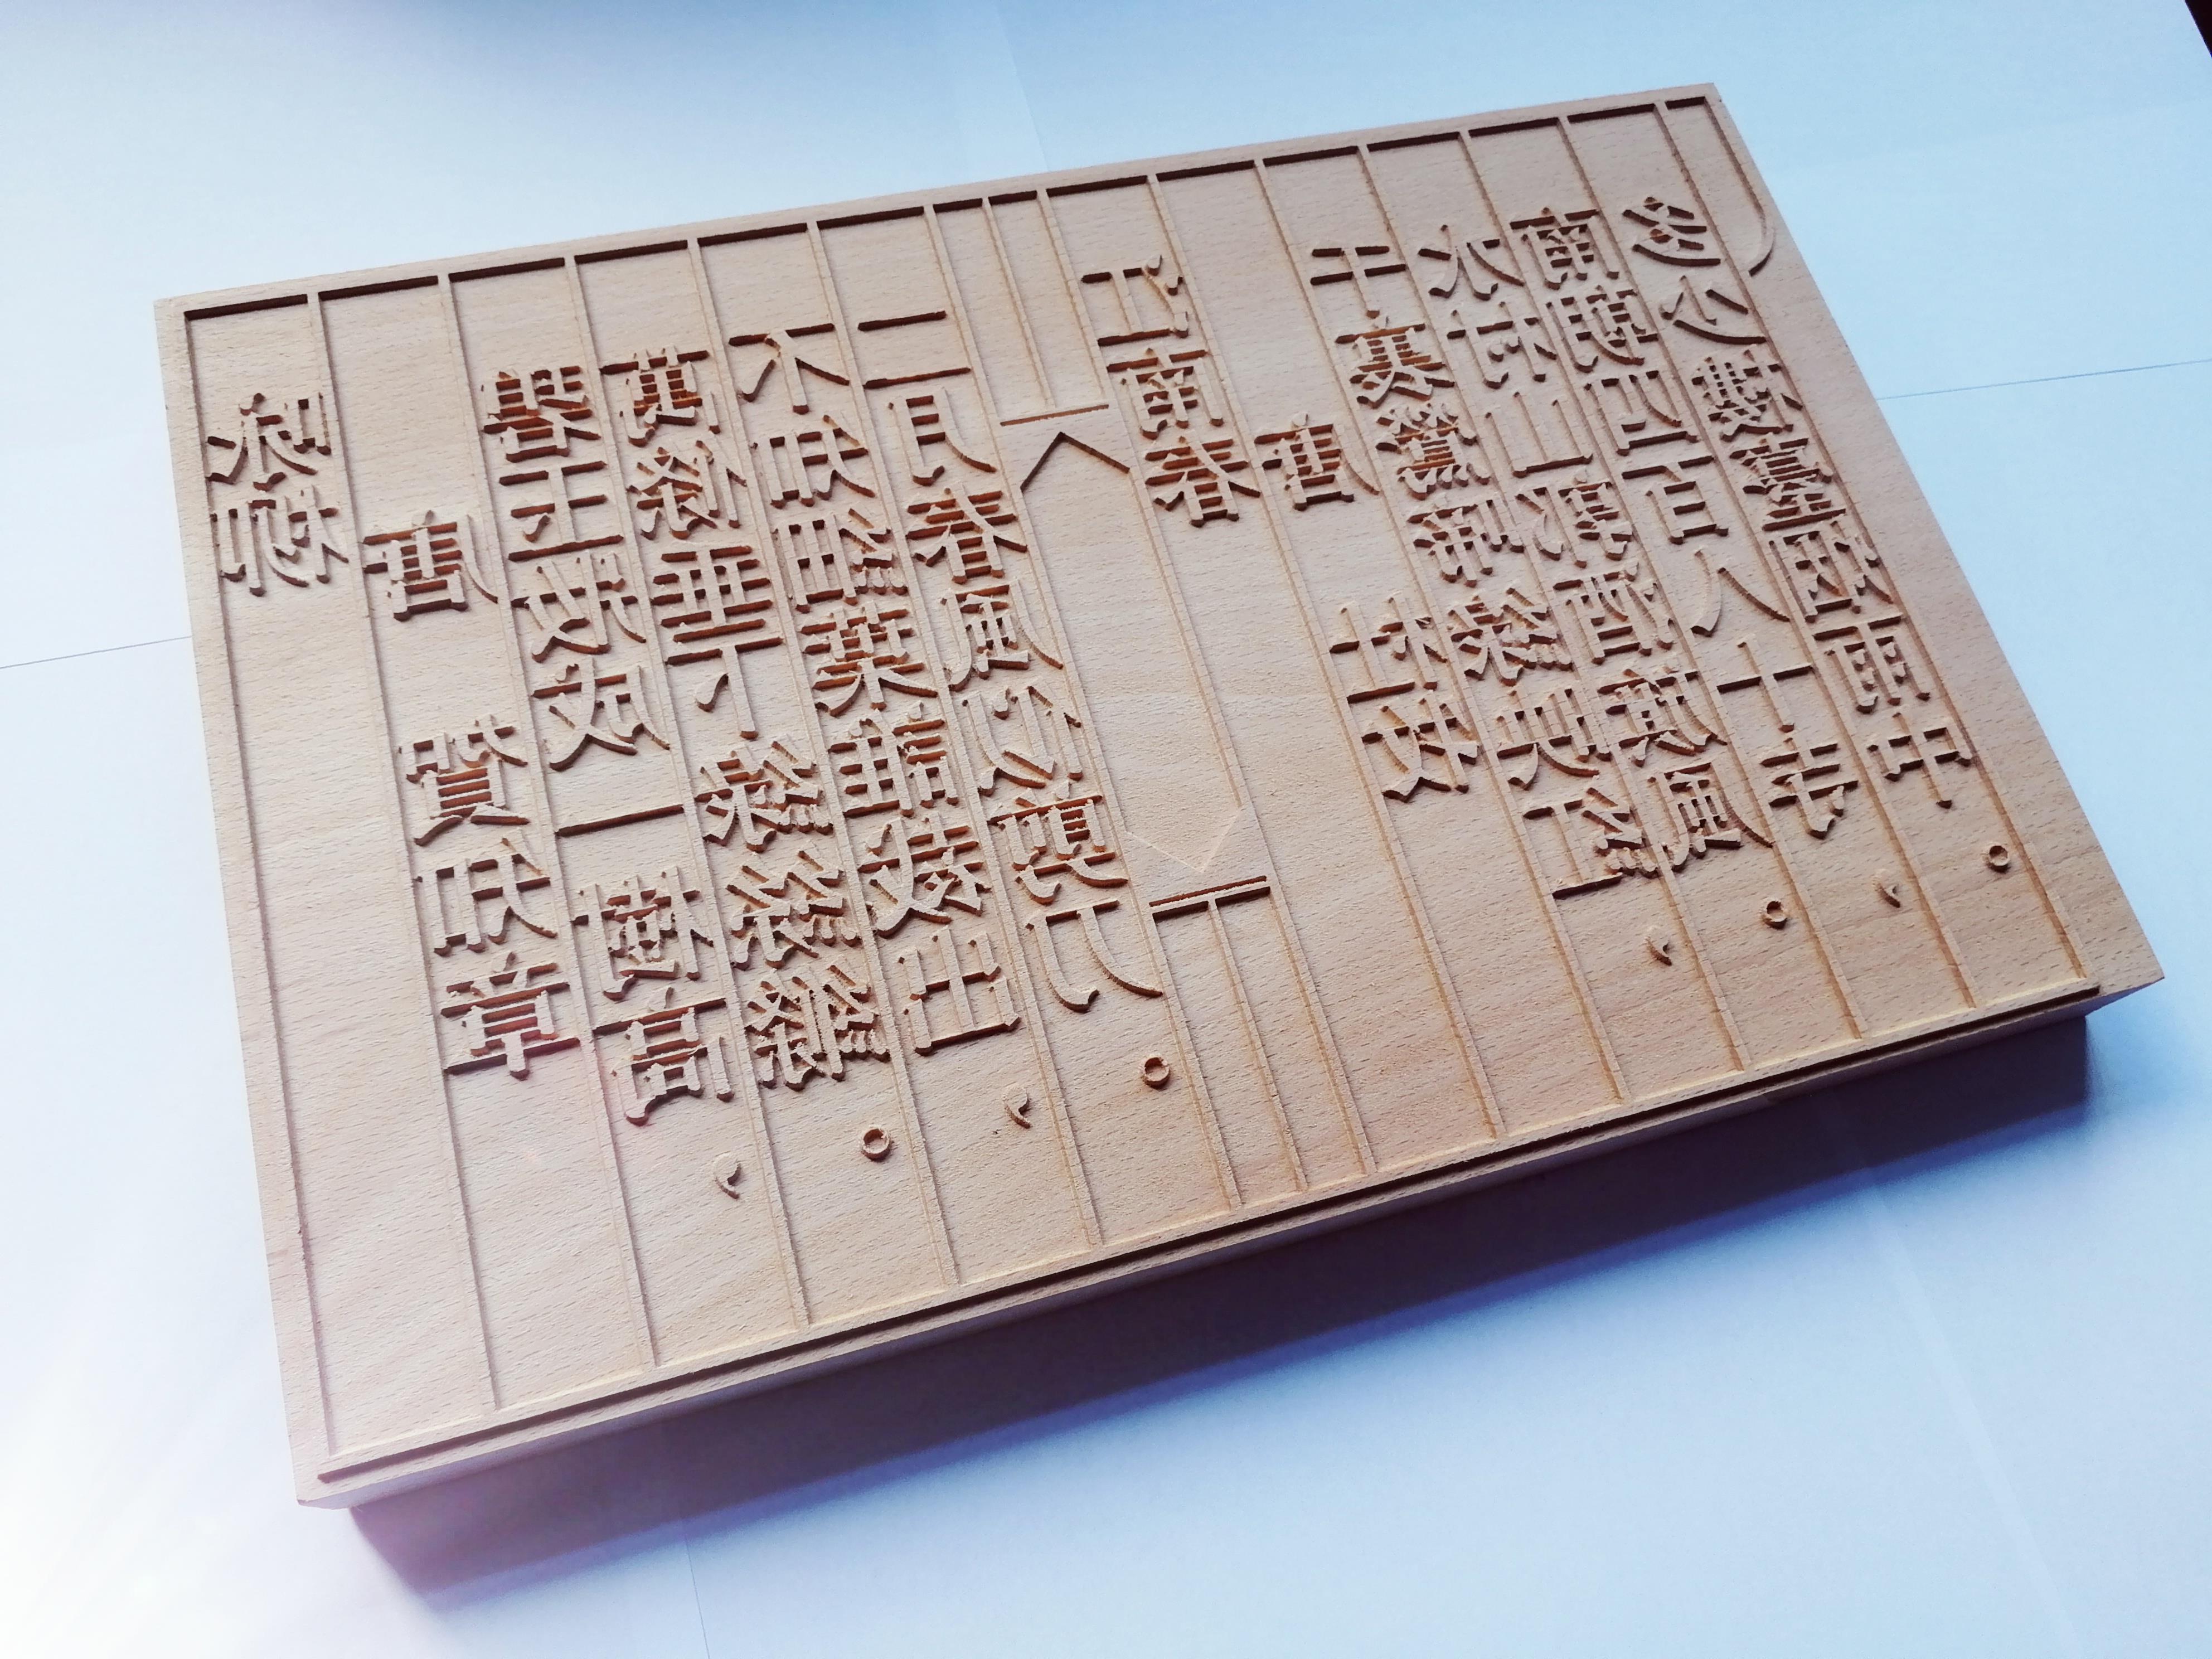 咏柳
唐 賀知章
碧玉妝成一樹高，
萬條垂下綠絲縧。
不知細葉誰裁出，
二月春風似剪刀。
江南春
唐 杜牧
千裏鶯啼綠映紅，
水村山郭酒旗風。
南朝四百八十寺，
多少樓臺烟雨中。